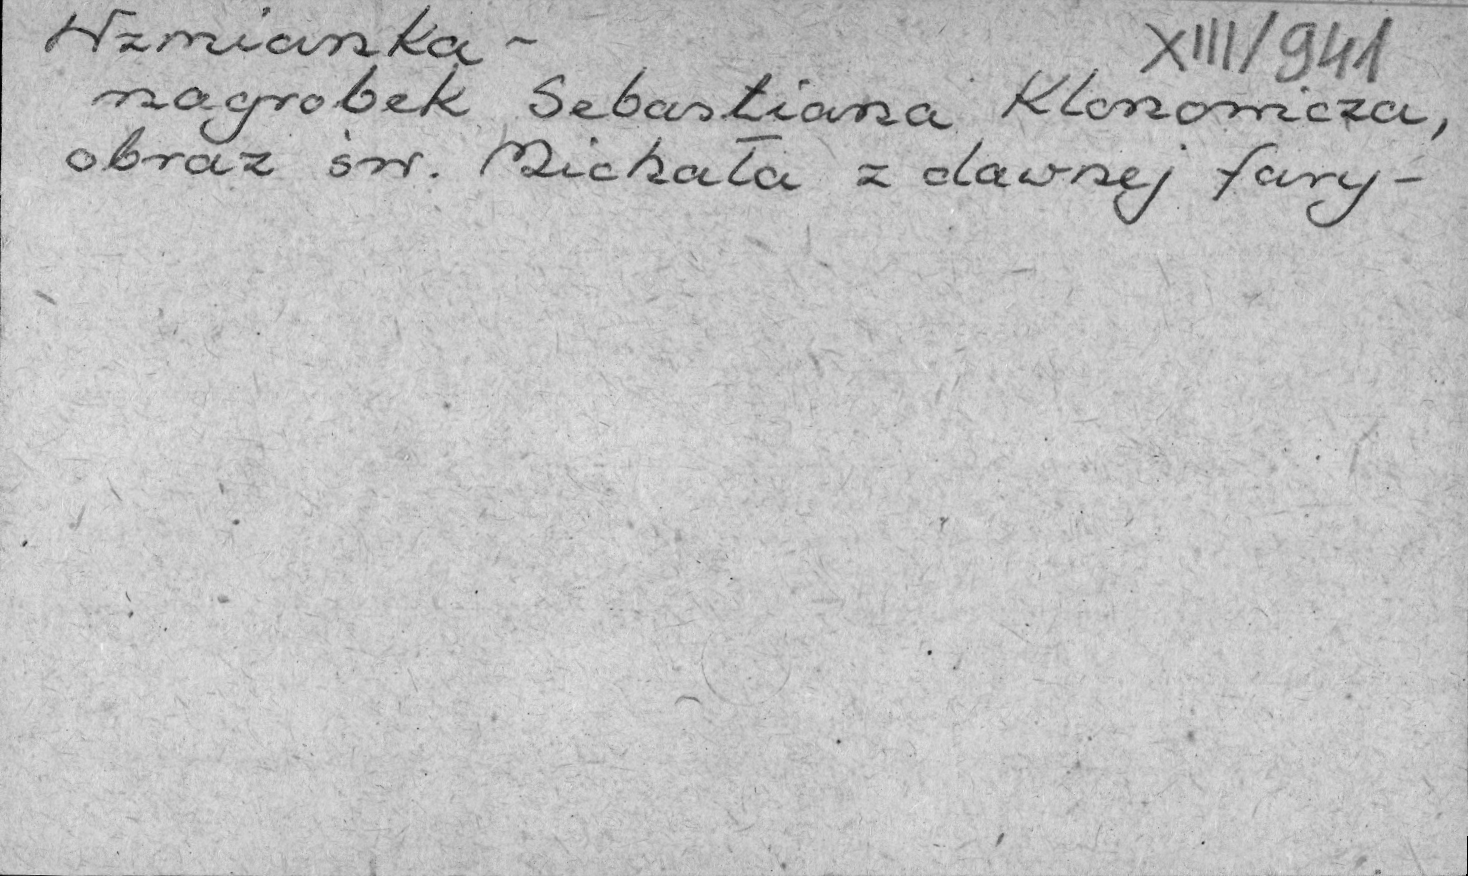 Wzmianka -
XIII/941
nagrobek Sebastiana Klonowicza,
obraz św. Michała z dawnej fary -